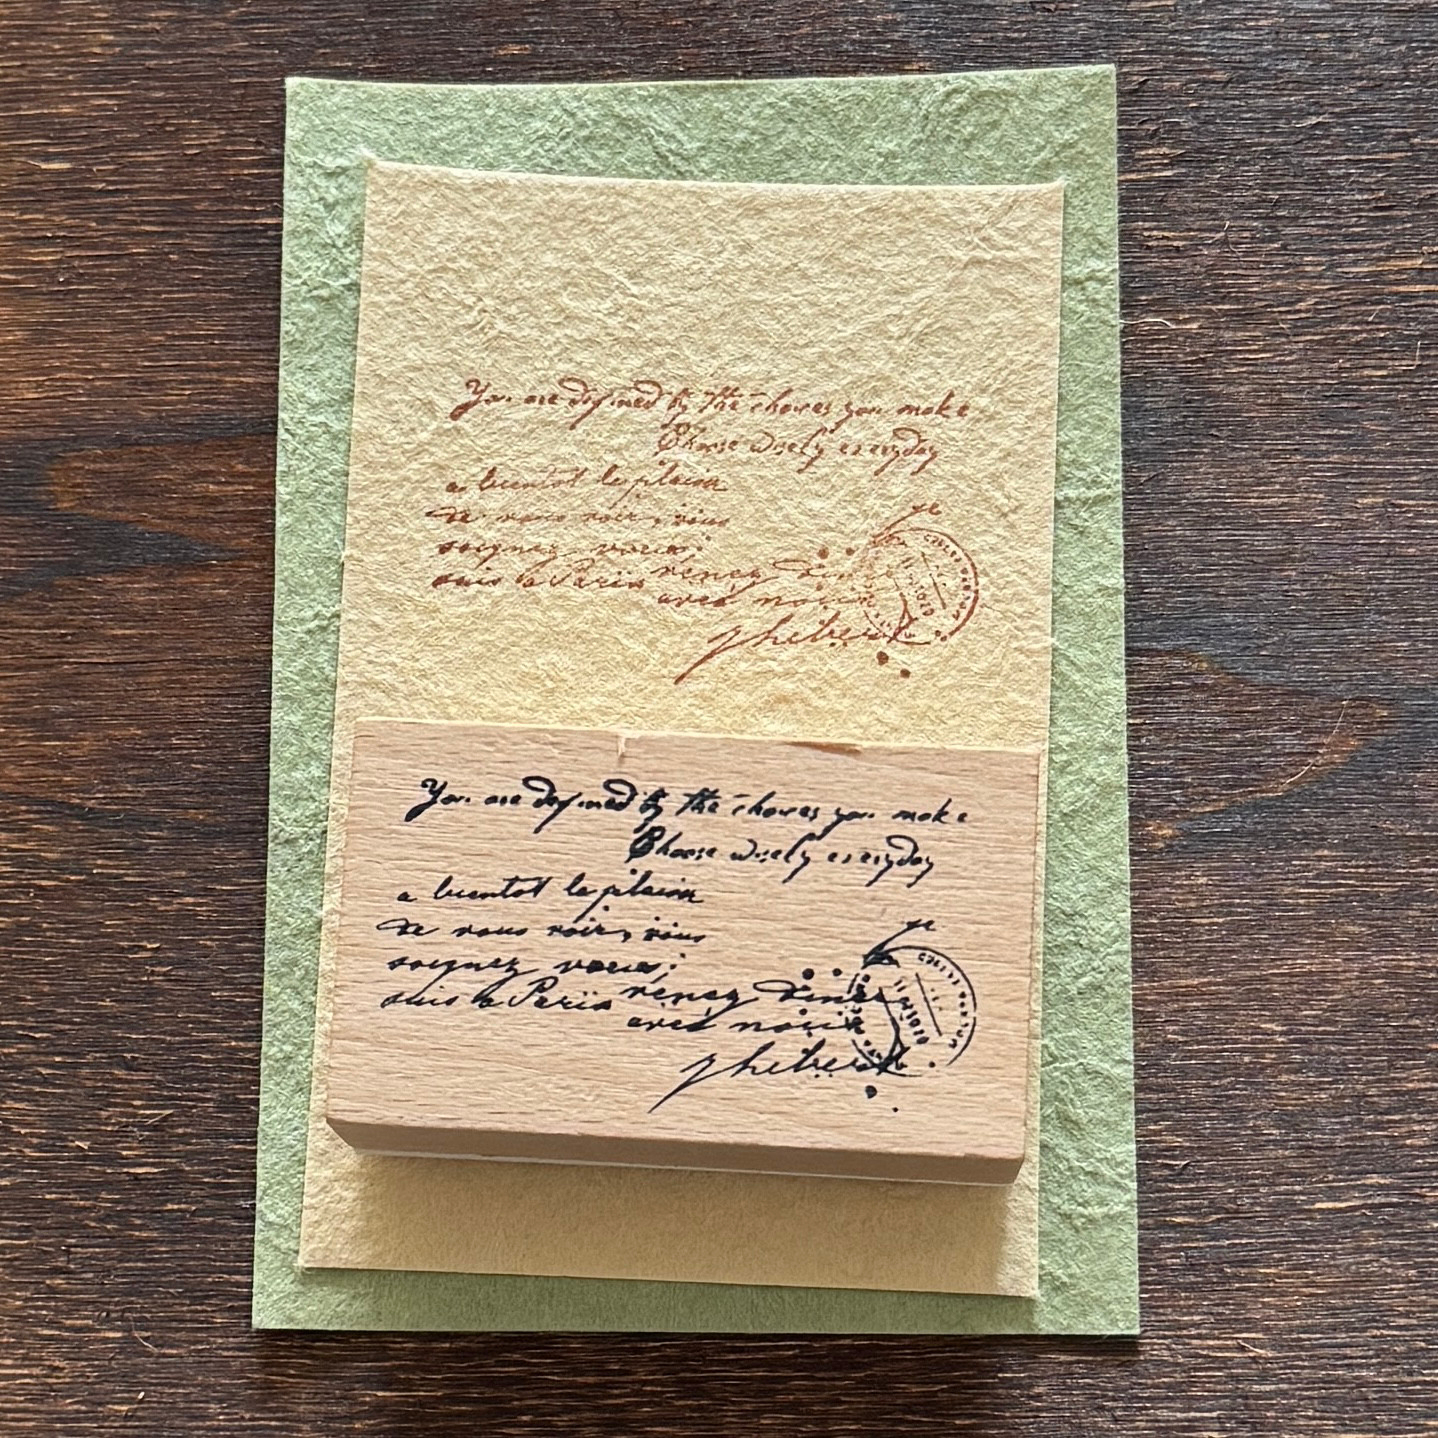 You are defined by the choices you make
Choose wisely everyday
a bientot le plaisir
de vous voir, vous
soignez vous;
suis a Paris venez diner
avec nous
je
You are defined by the choices you make
Choose wisely everyday
a bientot le plaisir
de vous voir, vous
soignez vous;
suis a Paris venez diner
avec nous
je